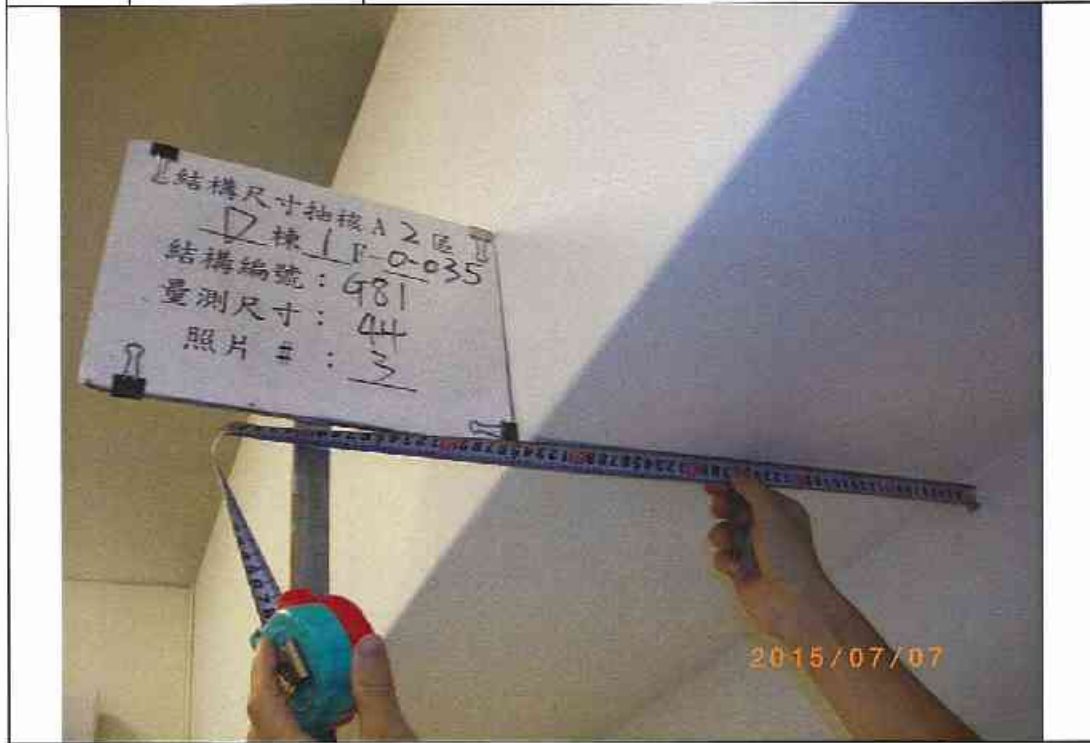 結構尺寸抽核 A 2 區
D 棟 1 F-0-035
結構編號：G81
量測尺寸：44
照片 #：3
2015/07/07